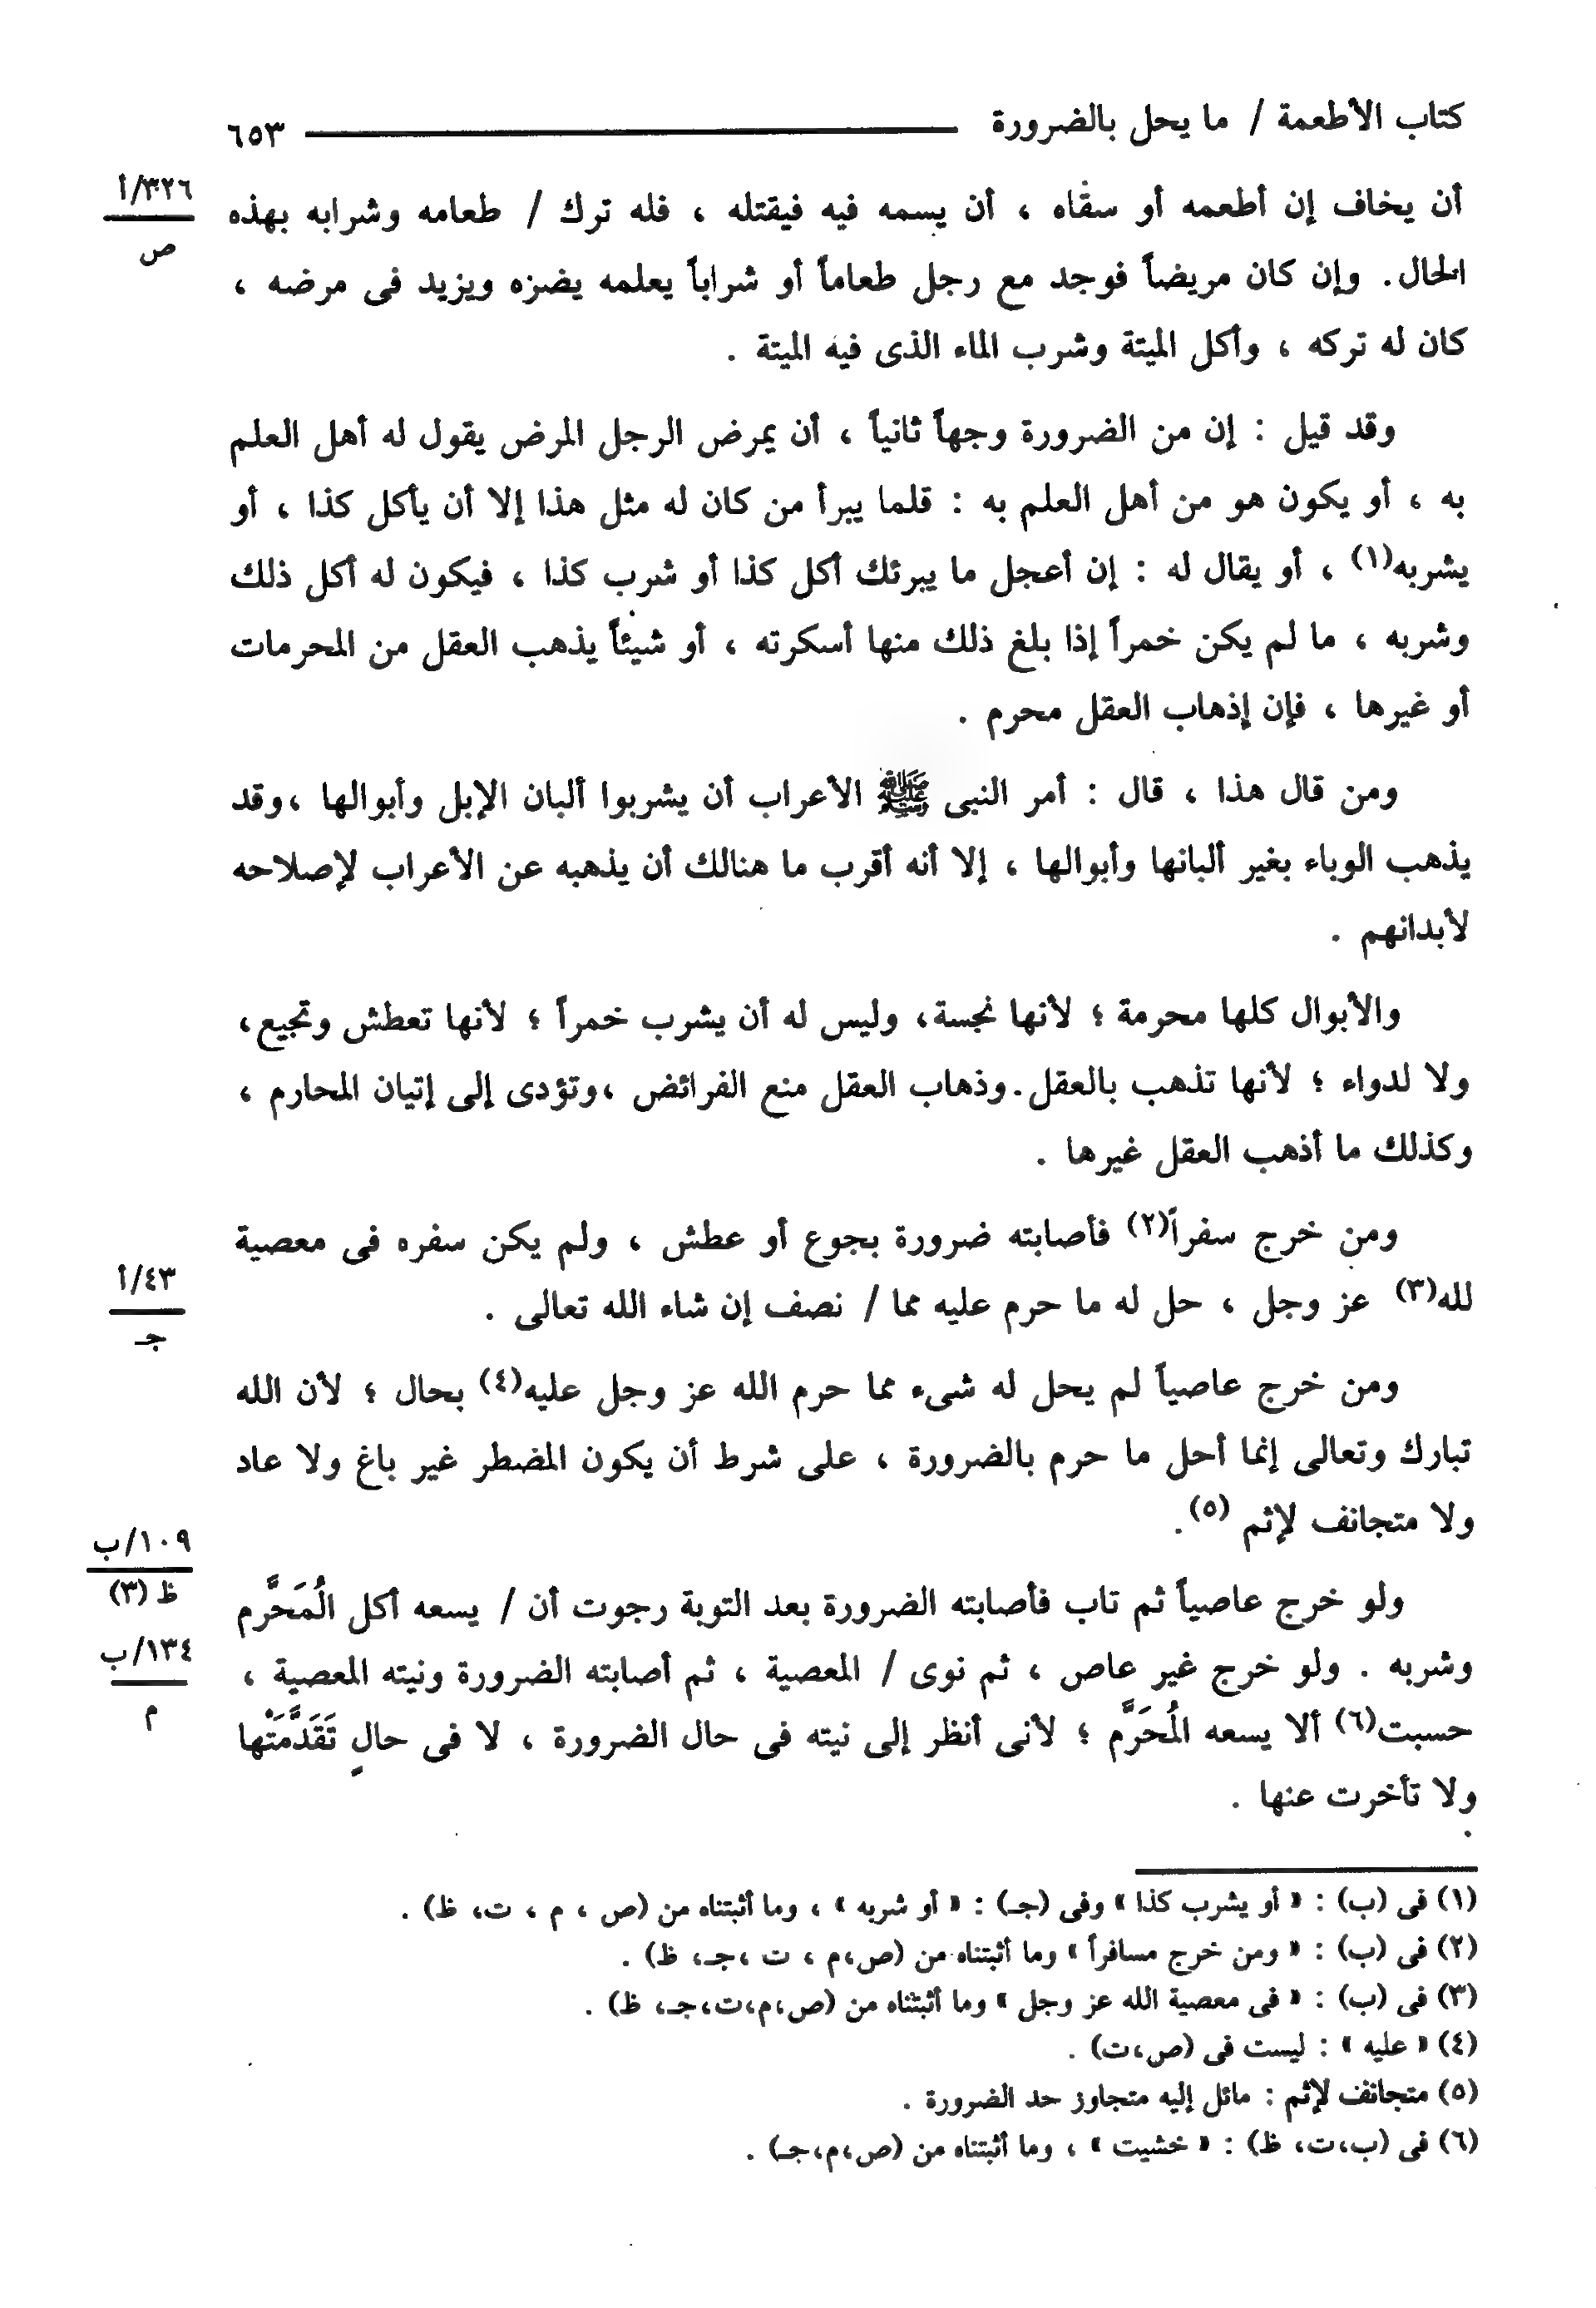 كتاب الأطعمة / ما يحل بالضرورة ٦٥٣
أن يخاف إن أطعمه أو سقاه ، أن يسمه فيه فيقتله ، فله ترك / طعامه وشرابه بهذه
٣٢٦/أ
ص
الحال. وإن كان مريضاً فوجد مع رجل طعاماً أو شراباً يعلمه يضره ويزيد فى مرضه ،
كان له تركه ، وأكل الميتة وشرب الماء الذى فيه الميتة .
وقد قيل : إن من الضرورة وجهاً ثانياً ، أن يمرض الرجل المرض يقول له أهل العلم
به ، أو يكون هو من أهل العلم به : قلما يبرأ من كان له مثل هذا إلا أن يأكل كذا ، أو
يشربه(١) ، أو يقال له : إن أعجل ما يبرئك أكل كذا أو شرب كذا ، فيكون له أكل ذلك
وشربه ، ما لم يكن خمراً إذا بلغ ذلك منها أسكرته ، أو شيئاً يذهب العقل من المحرمات
أو غيرها ، فإن إذهاب العقل محرم .
ومن قال هذا ، قال : أمر النبى ﷺ الأعراب أن يشربوا ألبان الإبل وأبوالها ،وقد
يذهب الوباء بغير ألبانها وأبوالها ، إلا أنه أقرب ما هنالك أن يذهبه عن الأعراب لإصلاحه
لأبدانهم .
والأبوال كلها محرمة ؛ لأنها نجسة، وليس له أن يشرب خمراً ؛ لأنها تعطش وتجيع،
ولا لدواء ؛ لأنها تذهب بالعقل.وذهاب العقل منع الفرائض ،وتؤدى إلى إتيان المحارم ،
وكذلك ما أذهب العقل غيرها .
ومن خرج سفراً(٢) فأصابته ضرورة بجوع أو عطش ، ولم يكن سفره فى معصية
لله(٣) عز وجل ، حل له ما حرم عليه مما / نصف إن شاء الله تعالى .
٤٣/أ
جـ
ومن خرج عاصياً لم يحل له شىء مما حرم الله عز وجل عليه(٤) بحال ؛ لأن الله
تبارك وتعالى إنما أحل ما حرم بالضرورة ، على شرط أن يكون المضطر غير باغ ولا عاد
ولا متجانف لإثم (٥).
ولو خرج عاصياً ثم تاب فأصابته الضرورة بعد التوبة رجوت أن / يسعه أكل الُمَحَّرم
١٠٩/ب
ظ (٣)
وشربه . ولو خرج غير عاص ، ثم نوى / المعصية ، ثم أصابته الضرورة ونيته المعصية ،
١٣٤/ب
م
حسبت(٦) ألا يسعه المُحَرَّم ؛ لأنى أنظر إلى نيته فى حال الضرورة ، لا فى حالٍ تَقَدَّمَتْها
ولا تأخرت عنها .
(١) فى (ب) : « أو يشرب كذا » وفى (جـ) : « أو شربه » ، وما أثبتناه من (ص ، م ، ت، ظ) .
(٢) فى (ب) : « ومن خرج مسافراً » وما أثبتناه من (ص،م ، ت ،جـ، ظ) .
(٣) فى (ب) : « فى معصية الله عز وجل » وما أثبتناه من (ص،م،ت،جـ، ظ) .
(٤) « عليه » : ليست فى (ص،ت) .
(٥) متجانف لإثم : مائل إليه متجاوز حد الضرورة .
(٦) فى (ب،ت، ظ) : « خشيت » ، وما أثبتناه من (ص،م،جـ) .